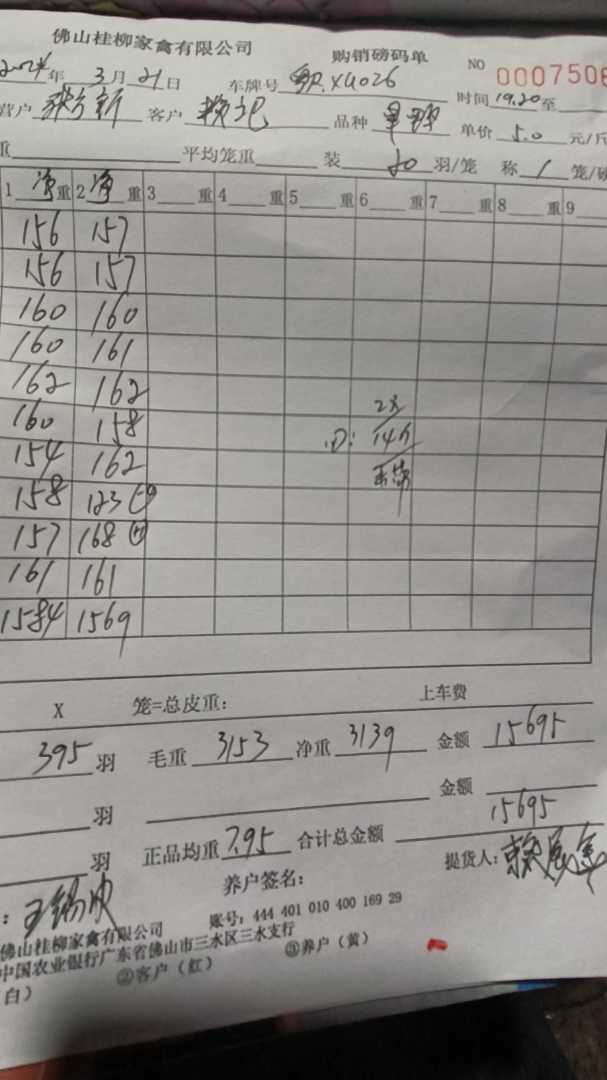 佛山桂柳家禽有限公司 购销磅码单 NO 0007506
2024年 3月21日 车牌号 X4026 时间 19.20 至
营户 新 客户 赖记 品种 单价 5.0 元/斤
重 平均笼重 装 羽/笼 称 1 笼/磅
1 净重 2 净重 3 重 4 重 5 重 6 重 7 重 8 重 9
156 157
156 157
160 160
160 161
162 162
160 158
154 162
158 123
157 168
161 161
1584 1569
X 笼=总皮重: 上车费
395 羽 毛重 3153 净重 3139 金额 15695
羽 金额
羽 正品均重 7.95 合计总金额 15695
养户签名: 提货人:
佛山桂柳家禽有限公司 账号: 444 401 010 400 169 29
中国农业银行广东省佛山市三水区三水支行
白) ②客户(红) ③养户(黄)